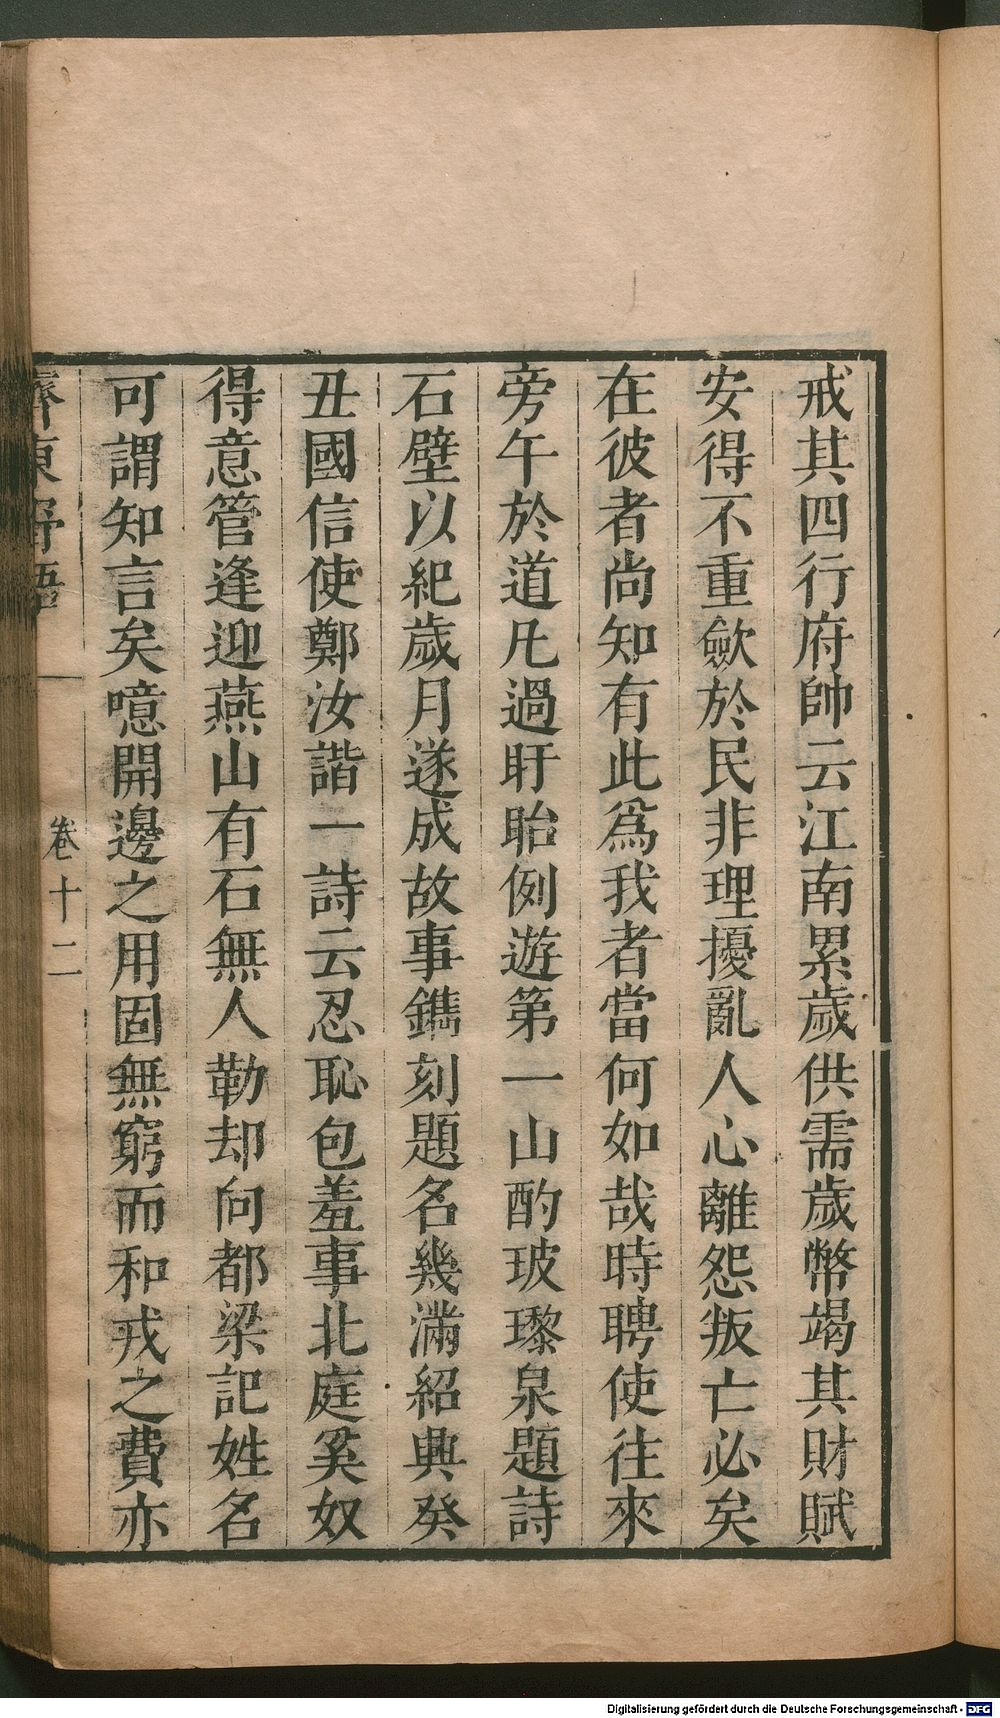 戒其四行府帥云江南累歲供需歲幣竭其財賦
安得不重歛於民非理擾亂人心離怨叛亡必矣
在彼者尚知有此爲我者當何如哉時聘使往來
旁午於道凡過盱眙例遊第一山酌玻瓈泉題詩
石壁以紀歲月遂成故事鐫刻題名幾滿紹興癸
丑國信使鄭汝諧一詩云忍恥包羞事北庭奚奴
得意管逢迎燕山有石無人勒却向都梁記姓名
可謂知言矣噫開邊之用固無窮而和戎之費亦
齊東野語
卷十二
Digitalisierung gefördert durch die Deutsche Forschungsgemeinschaft - DFG